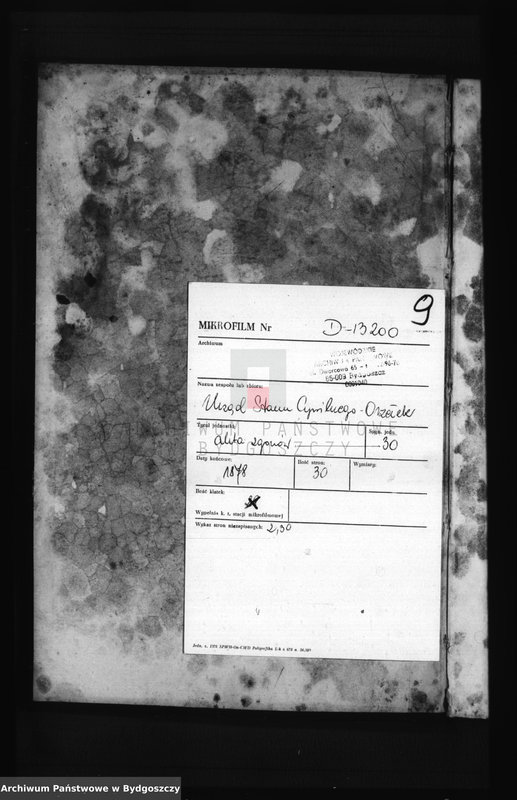 9
MIKROFILM Nr D-13200
Archiwum
WOJEWÓDZKIE
ARCHIWUM
ul. Dworcowa 65
85-009 Bydgoszcz
Nazwa zespołu lub zbioru:
Urząd Stanu Cywilnego - Orzełek
Tytuł jednostki: Sygn. jedn.
akta zgonów 30
ARCHIWUM PAŃSTWOWE
W BYDGOSZCZY
Daty końcowe: Ilość stron: Wymiary:
1878 30
Ilość klatek:
Wypełnia k. t. stacji mikrofilmowej
Wykaz stron niezapisanych: 2,30
Archiwum Państwowe w Bydgoszczy